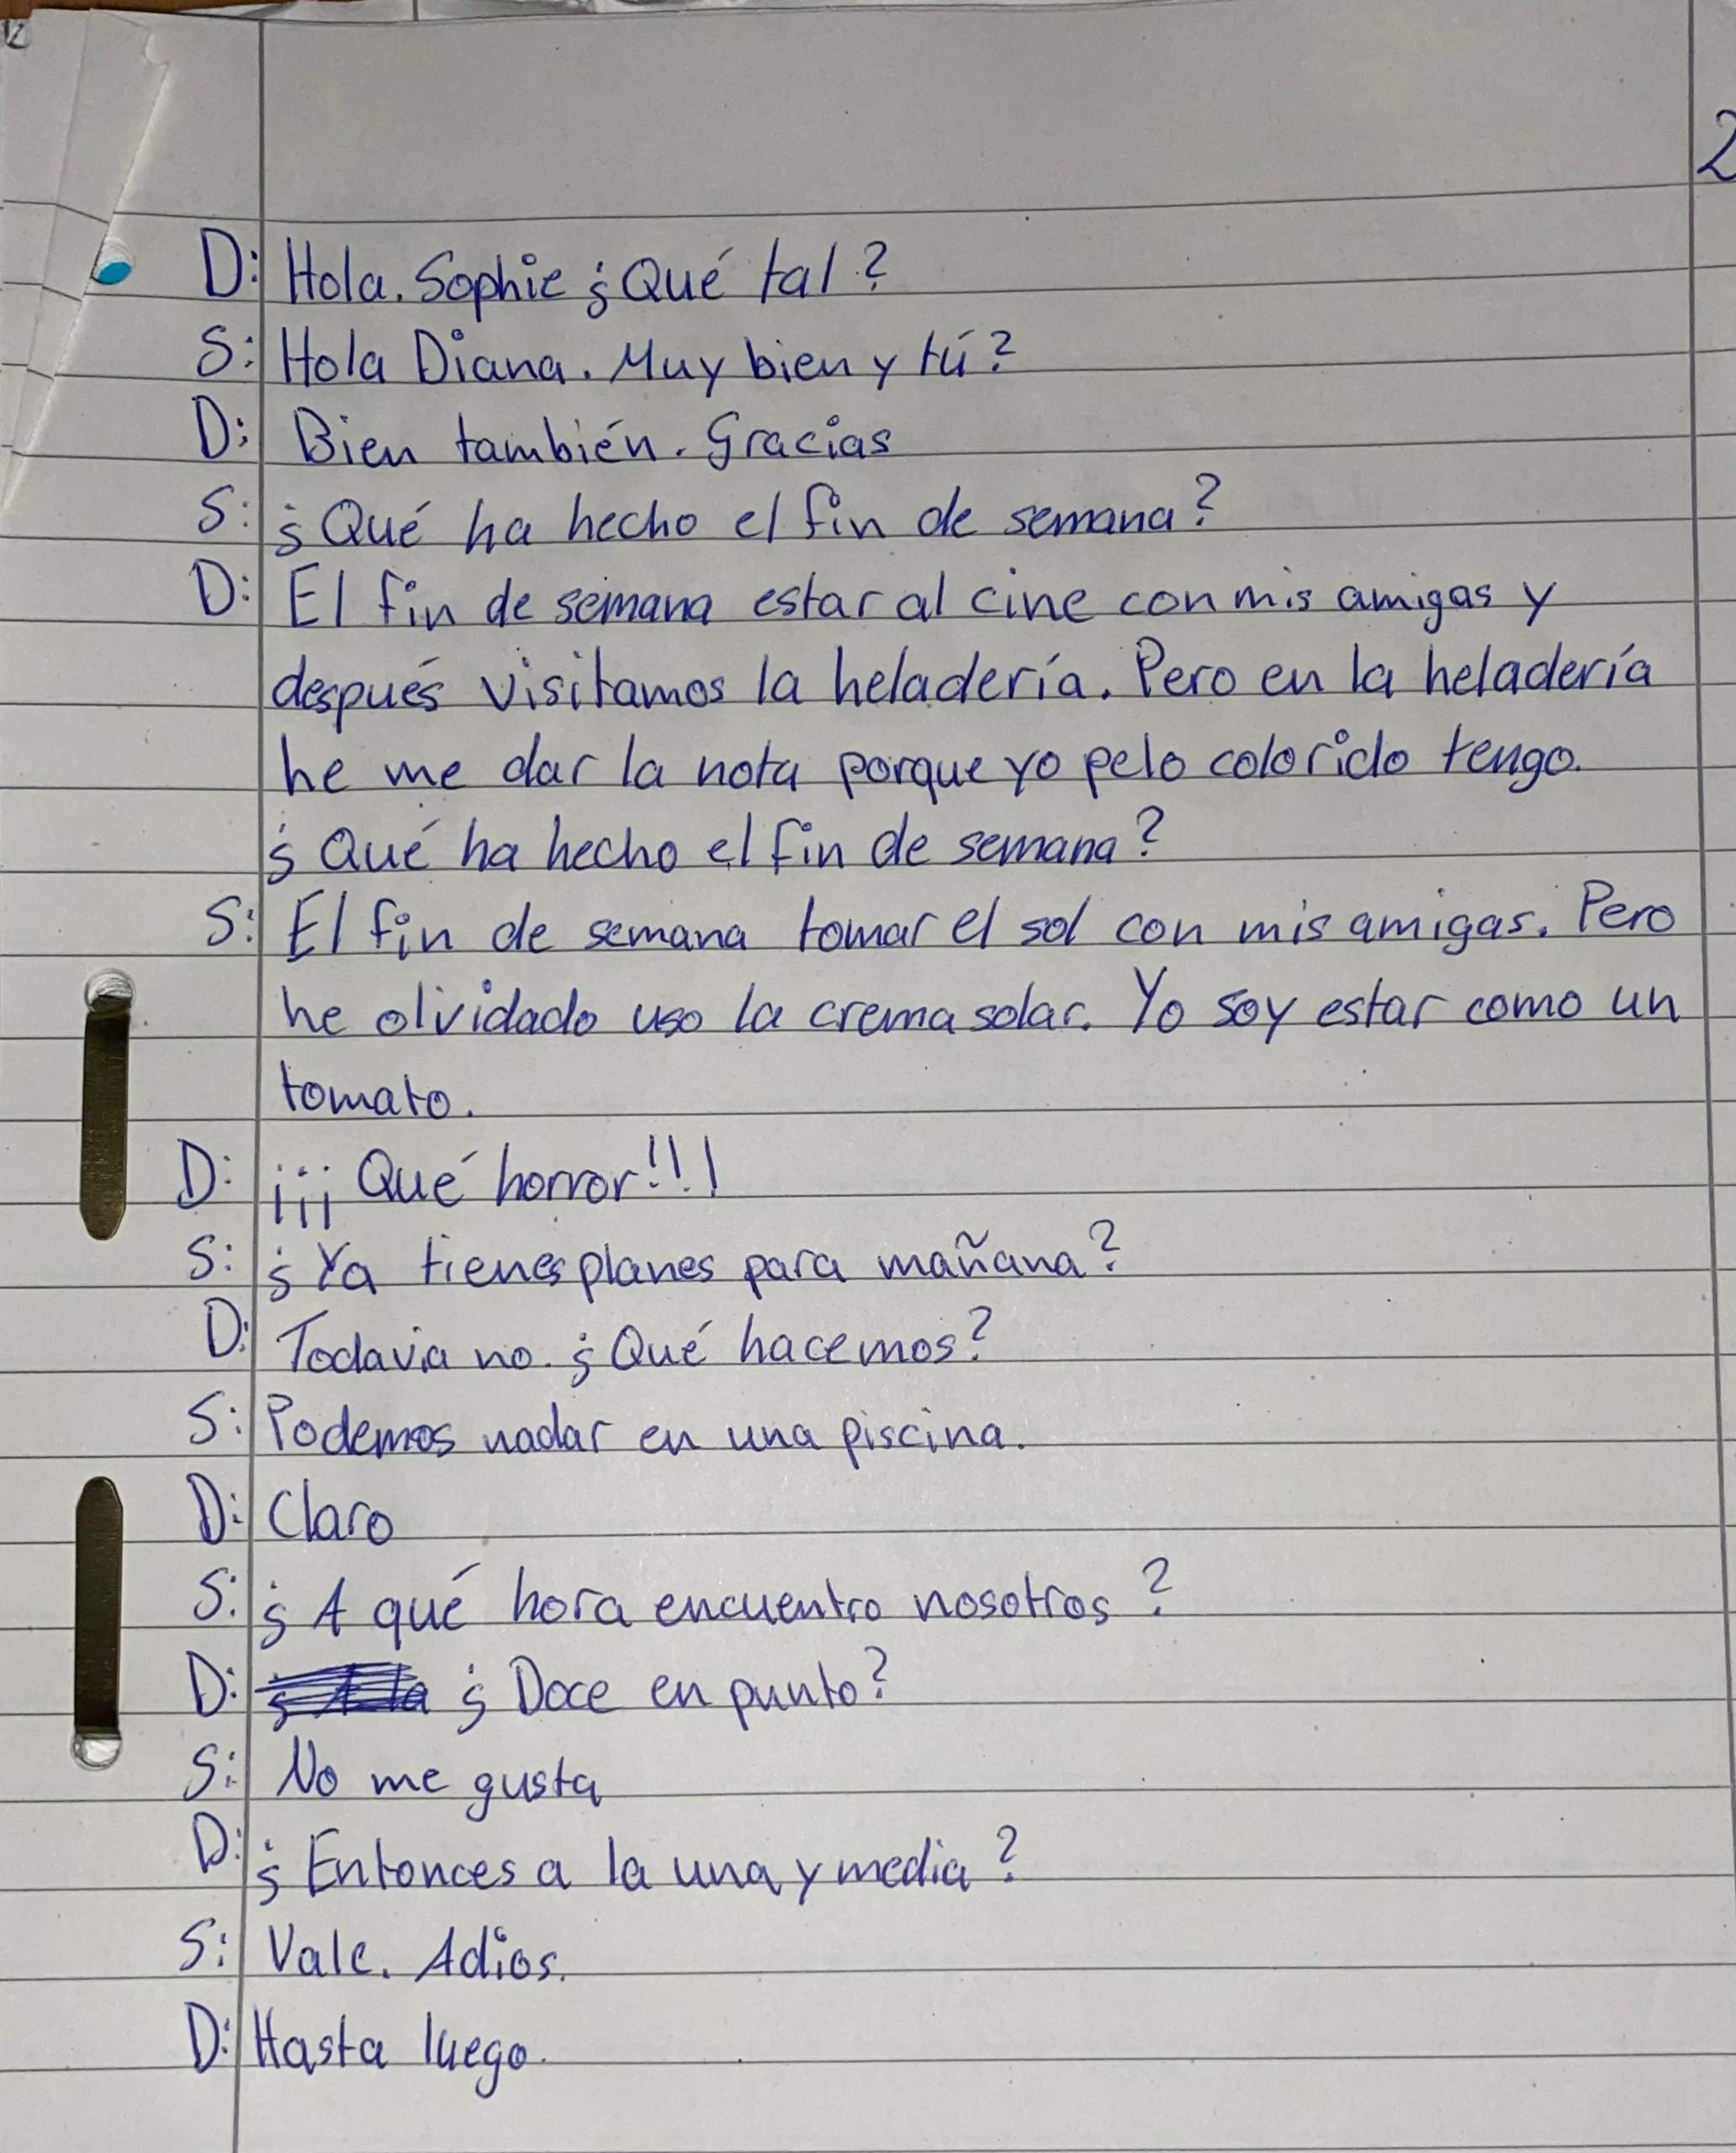 2
D: Hola. Sophie ¿Qué tal?
S: Hola Diana. Muy bien y tú?
D: Bien también. Gracias
S: ¿Qué ha hecho el fin de semana?
D: El fin de semana estar al cine con mis amigas y
después visitamos la heladería. Pero en la heladería
he me dar la nota porque yo pelo colorido tengo.
¿Qué ha hecho el fin de semana?
S: El fin de semana tomar el sol con mis amigas. Pero
he olvidado uso la crema solar. Yo soy estar como un
tomato.
D: ¡¡¡Qué horror!!!
S: ¿Ya tienes planes para mañana?
D: Todavia no. ¿Qué hacemos?
S: Podemos nadar en una piscina.
D: Claro
S: ¿A qué hora encuentro nosotros?
D: ¿Doce en punto?
S: No me gusta
D: ¿Entonces a la una y media?
S: Vale. Adios.
D: Hasta luego.